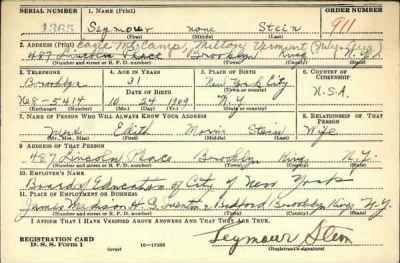 SERIAL NUMBER
1365
1. NAME (Print)
ORDER NUMBER
911
Seymour none Stein
(First) (Middle) (Last)
2. ADDRESS (Print) Eagle Mt. Camp, Milton Vermont (July-Aug)
487 Lincoln Place Brooklyn Kings N.Y.
(Number and street or R. F. D. number) (Town) (County) (State)
3. TELEPHONE
4. AGE IN YEARS
5. PLACE OF BIRTH
6. COUNTRY OF CITIZENSHIP
Brooklyn
31
New York City
DATE OF BIRTH
(Town or county)
U.S.A.
8-5414
10 24 1909
N.Y.
(Exchange) (Number)
(Mo.) (Day) (Yr.)
(State or country)
7. NAME OF PERSON WHO WILL ALWAYS KNOW YOUR ADDRESS
8. RELATIONSHIP OF THAT PERSON
Mrs. Edith Morris Stein
Wife
(Mr., Mrs., Miss) (First) (Middle) (Last)
9. ADDRESS OF THAT PERSON
487 Lincoln Place Brooklyn Kings N.Y.
(Number and street or R. F. D. number) (Town) (County) (State)
10. EMPLOYER'S NAME
Board of Education of City of New York
11. PLACE OF EMPLOYMENT OR BUSINESS
James Madison H.S. Bedford Brooklyn Kings N.Y.
(Number and street or R. F. D. number) (Town) (County) (State)
I AFFIRM THAT I HAVE VERIFIED ABOVE ANSWERS AND THAT THEY ARE TRUE.
REGISTRATION CARD
D. S. S. FORM 1
(over)
16-17105
Seymour Stein
(Registrant's signature)